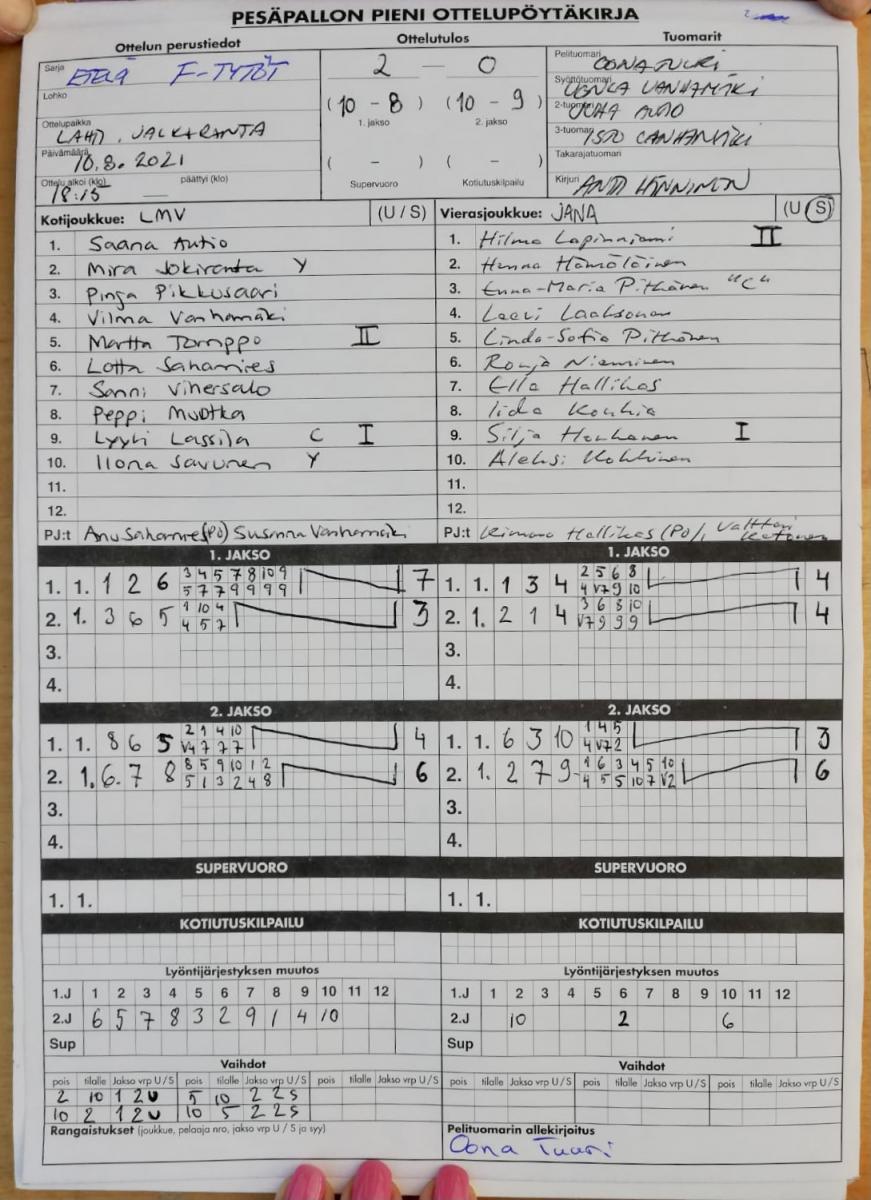 PESÄPALLON PIENI OTTELUPÖYTÄKIRJA
Ottelun perustiedot
Ottelutulos
Tuomarit
Sarja ETELÄ F-TYTÖT
Lohko
Ottelupaikka
LAHTI, JALKARANTA
Päivämäärä
10.8.2021
Ottelu alkoi (klo) päättyi (klo)
18:15 —
2 — 0
(10 - 8) (10 - 9)
1. jakso 2. jakso
( - ) ( - )
Supervuoro Kotiutuskilpailu
Pelituomari OONA TUURI
Syöttötuomari VANHAMÄKI
2-tuomari JUHA AUTIO
3-tuomari
Takarajatuomari
Kirjuri ANTTI HÄNNINEN
Kotijoukkue: LMV (U / S)
1. Saana Autio
2. Mira Jokiranta Y
3. Pinja Pikkusaari
4. Vilma Vanhamäki
5. Martta Tomppo II
6. Lotta Sahamies
7. Sanni Vihersalo
8. Peppi Muotka
9. Lyyli Lassila C I
10. Ilona Savunen Y
11.
12.
PJ:t Anu Sahamies (PO) Susanna Vanhamäki
Vierasjoukkue: JANA (U / S)
1. Hilma Lapinniemi II
2. Henna Hämäläinen
3. Enna-Maria Pitkänen "C"
4. Leevi Laaksonen
5. Linda-Sofia Pitkänen
6. Ronja Nieminen
7. Ella Hallikas
8. Iida Kouhia
9. Silja Honkanen I
10. Aleksi Kokkinen
11.
12.
PJ:t Kimmo Hallikas (PO), Valtteri
1. JAKSO
1. 1. 1 2 6 3 4 5 7 8 10 9 7
5 7 7 9 9 9 9
2. 1. 3 6 5 1 10 4 3
4 5 7
3.
4.
1. JAKSO
1. 1. 1 3 4 2 5 6 8 4
4 V7 9 10
2. 1. 2 1 4 3 6 8 10 4
V7 9 9 9
3.
4.
2. JAKSO
1. 1. 8 6 5 2 1 4 10 4
V4 7 7 7
2. 1. 6. 7 8 8 5 9 10 1 2 6
5 1 3 2 4 8
3.
4.
2. JAKSO
1. 1. 6 3 10 1 4 5 3
4 V7 2
2. 1. 2 7 9 1 6 3 4 5 10 6
4 5 5 10 7 V2
3.
4.
SUPERVUORO
1. 1.
SUPERVUORO
1. 1.
KOTIUTUSKILPAILU
KOTIUTUSKILPAILU
Lyöntijärjestyksen muutos
1.J 1 2 3 4 5 6 7 8 9 10 11 12
2.J 6 5 7 8 3 2 9 1 4 10
Sup
Lyöntijärjestyksen muutos
1.J 1 2 3 4 5 6 7 8 9 10 11 12
2.J 10 2 6
Sup
Vaihdot
pois tilalle Jakso vrp U / S pois tilalle Jakso vrp U / S pois tilalle Jakso vrp U / S
2 10 1 2 U 5 10 2 2 S
10 2 1 2 U 10 5 2 2 S
Vaihdot
pois tilalle Jakso vrp U / S pois tilalle Jakso vrp U / S pois tilalle Jakso vrp U / S
Rangaistukset (joukkue, pelaaja nro, jakso vrp U / S ja syy)
Pelituomarin allekirjoitus
Oona Tuuri